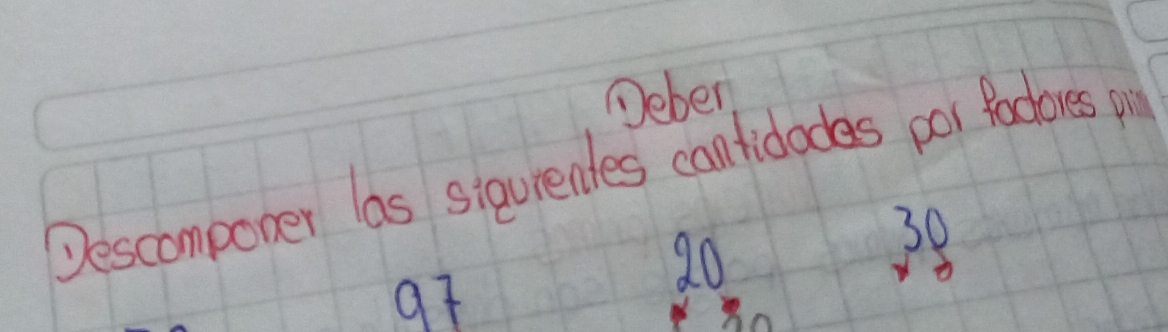 Deber
Descomponer las siguientes cantidades por factores
97 20 30